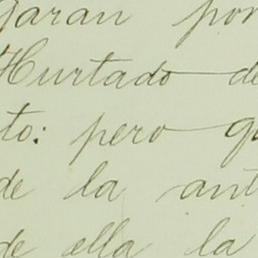 garan por
Hurtado de
to: pero q
de la ant
de ella la